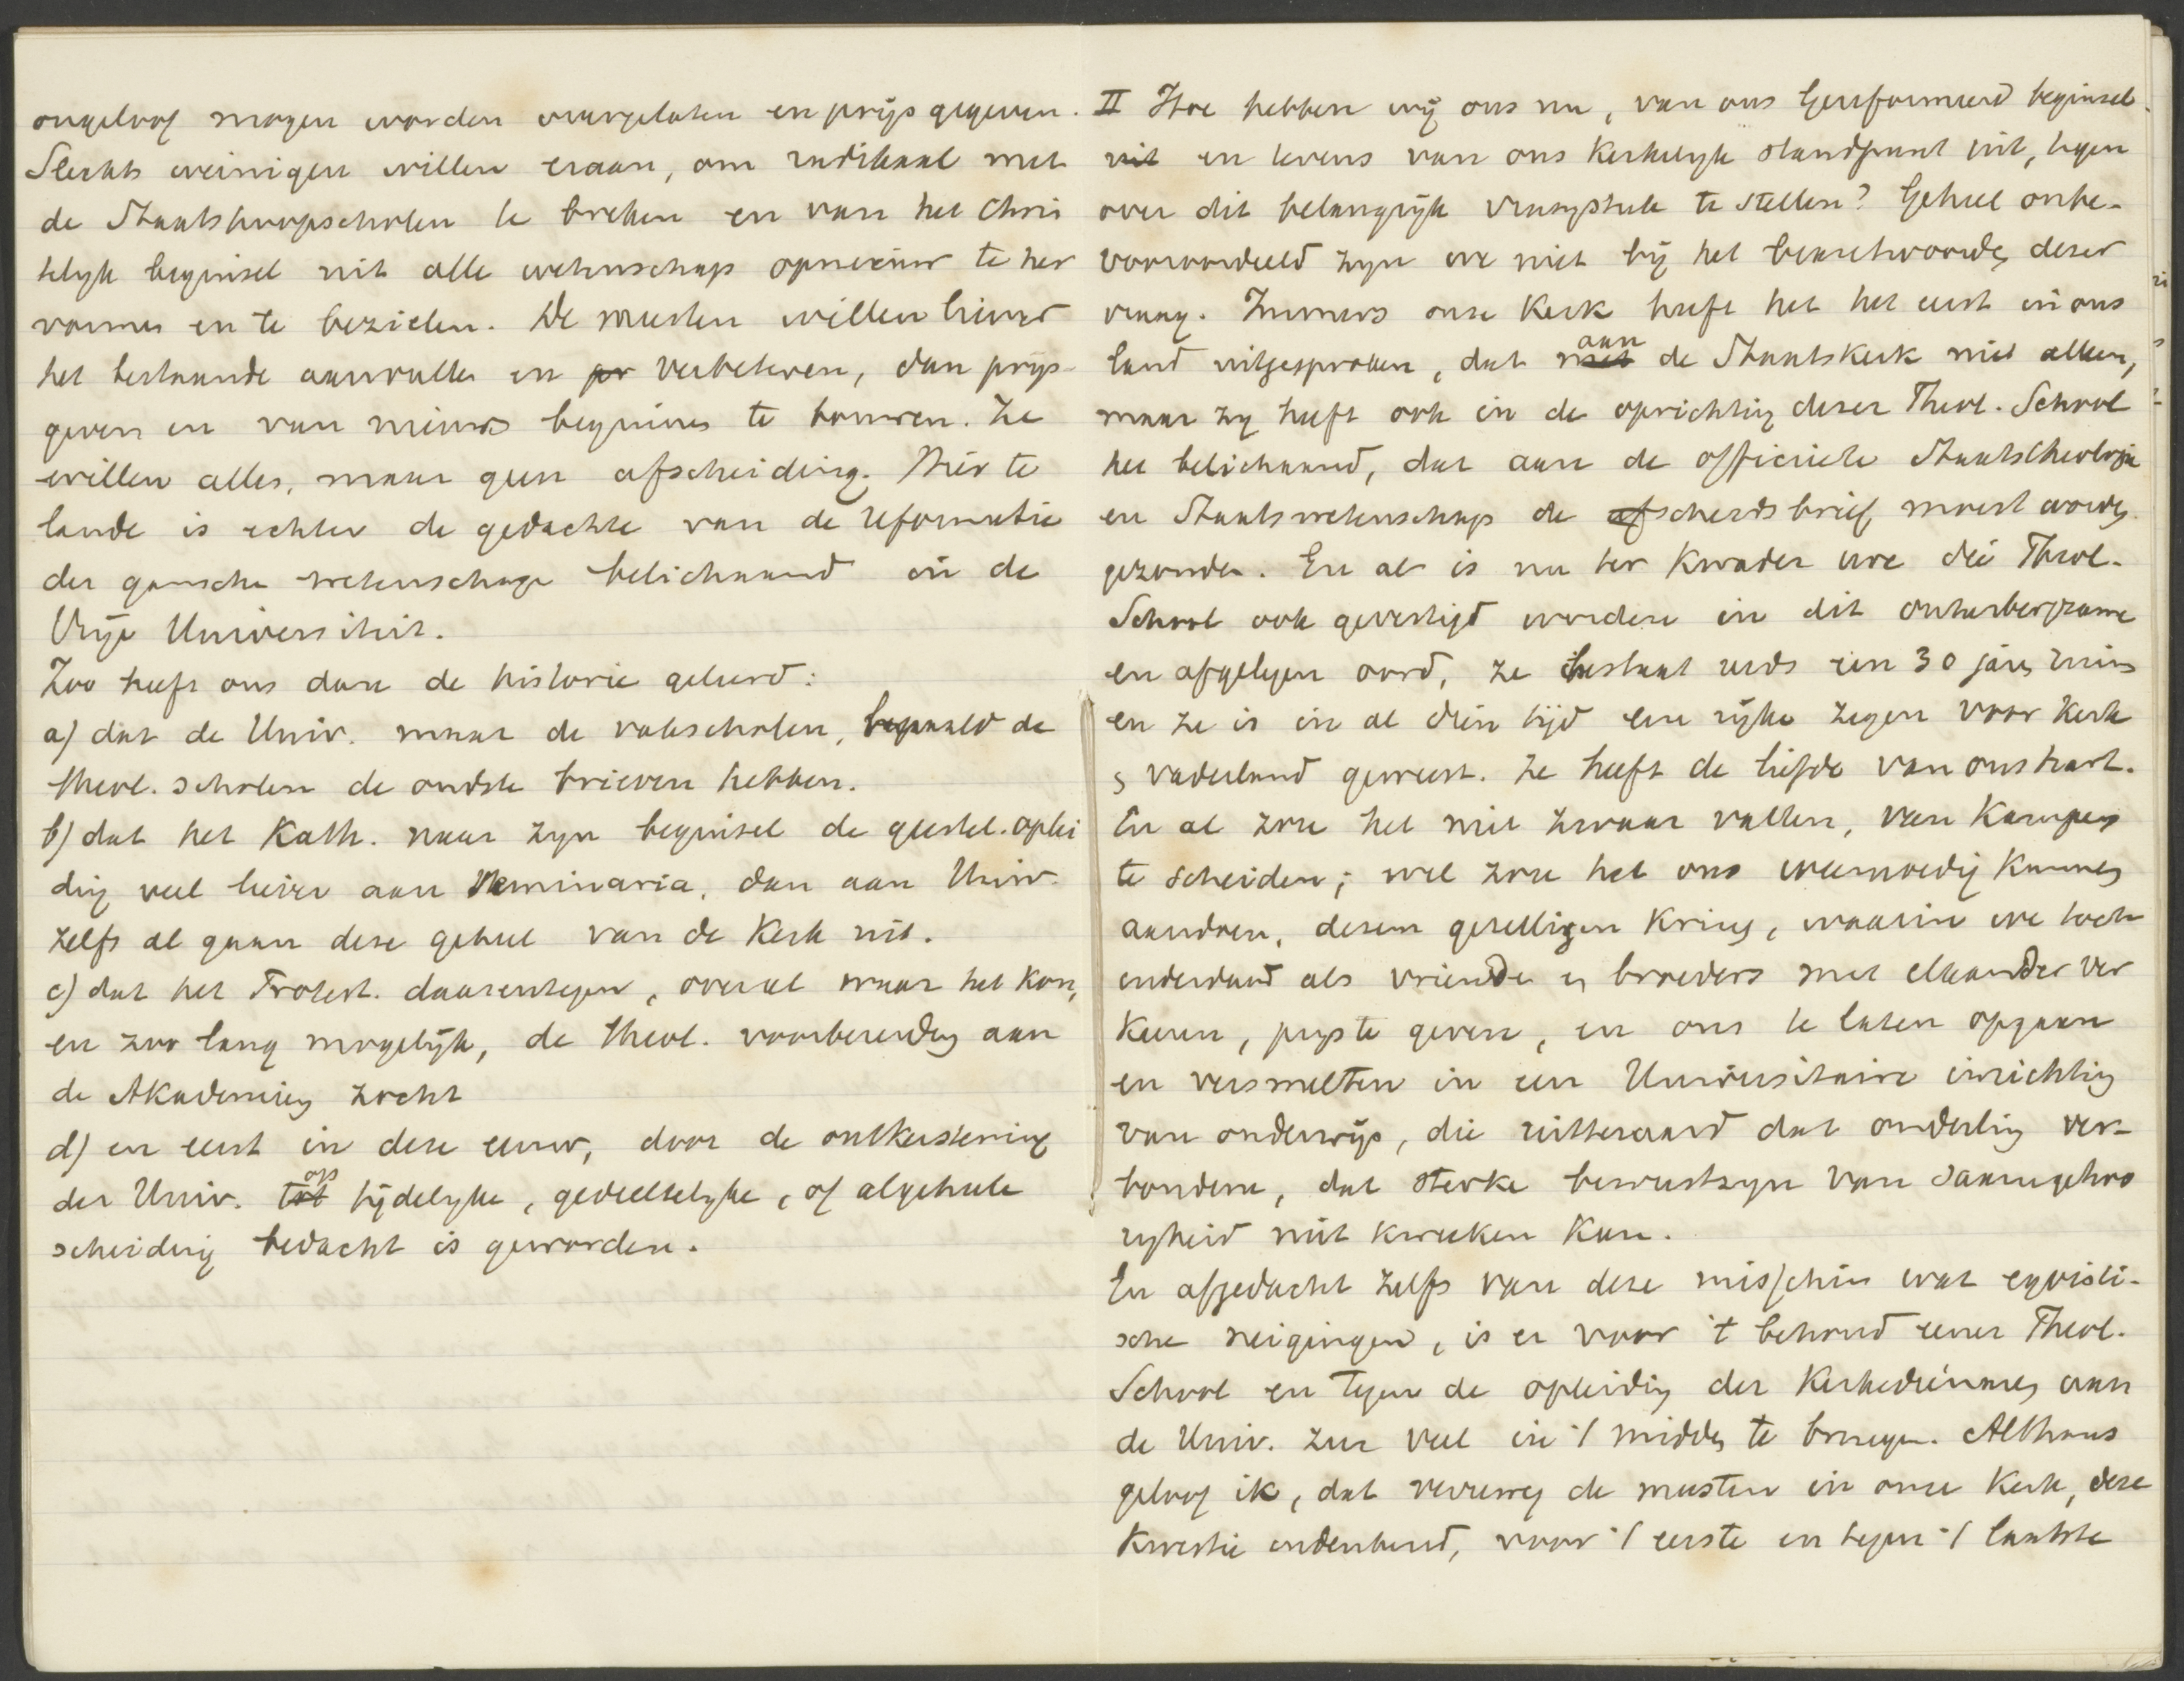 ongeloof mogen worden overgelaten en prijs gegeven.
Slechts weinigen willen eraan, om radikaal met
de Staatshoogescholen te breken en van het Chris
telijk beginsel uit alle wetenschap opnieuw te her
vormen en te bezielen. De meesten willen liever
het bestaande aanvullen en pr verbeteren, dan prijs-
geven en van nieuws beginnen te bouwen. Ze
willen alles, maar geen afscheiding. Hier te
lande is echter de gedachte van de reformatie
der gansche wetenschap belichaamd in de
Vrije Universiteit.
Zoo heeft ons dan de historie geleerd:
a) dat de Univ. maar de vakscholen, bepaald de
theol. scholen de oudste brieven hebben.
b) dat het Kath. naar zijn beginsel de geestel. oplei
ding veel liever aan Seminaria, dan aan Univ.
zelfs al gaan deze geheel van de Kerk uit.
c) dat het Protest. daarentegen, overal waar het kon,
en zoo lang mogelijk, de theol. voorbereiding aan
de Akademien zocht
d) en eerst in deze eeuw, door de ontkerstening
der Univ. tot op tijdelijke, gedeeltelijke, of algeheele
scheiding bedacht is geworden.
II Hoe hebben wij ons nu, van ons Gereformeerd beginsel
uit en tevens van ons Kerkelijk standpunt uit, tegen
over dit belangrijk vraagstuk te stellen? Geheel onbe-
vooroordeeld zijn we niet bij het beantwoorden dezer
vraag. Immers onze Kerk heeft het het eerst in ons
land uitgesproken, dat met aan de Staatskerk niet alleen,
maar zij heeft ook in de oprichting dezer Theol. School
het belichaamd, dat aan de officieele Staatstheologie
en Staatswetenschap de afscheidsbrief moest worden
gezonden. En al is nu ter kwader ure die Theol.
School ook gevestigd worden in dit onherbergzame
en afgelegen oord, ze bestaat reeds een 30 jaren ruim
en ze is in al dien tijd een rijke zegen voor Kerk
en vaderland geweest. Ze heeft de liefde van ons hart.
En al zou het niet zwaar vallen, van Kampen
te scheiden; wel zou het ons weemoedig kunnen
aandoen, dezen gezelligen kring, waarin we toch
inderdaad als vrienden en broeders met elkander ver
keeren, prijs te geven, en ons te laten opgaan
en versmelten in een Universitaire inrichting
van onderwijs, die uitteraard dat onderling ver-
bonden, dat sterke bewustzijn van saamgehoo
righeid niet kweeken kan.
En afgedacht zelfs van deze misschien wat egoisti-
sche neigingen, is er voor 't behoud eener Theol.
School en tegen de opleiding der Kerkedienaren aan
de Univ. zeer veel in 't midden te brengen. Althans
geloof ik, dat verreweg de meesten in onze Kerk, deze
kwestie indenkend, voor 't eerste en tegen 't laatste